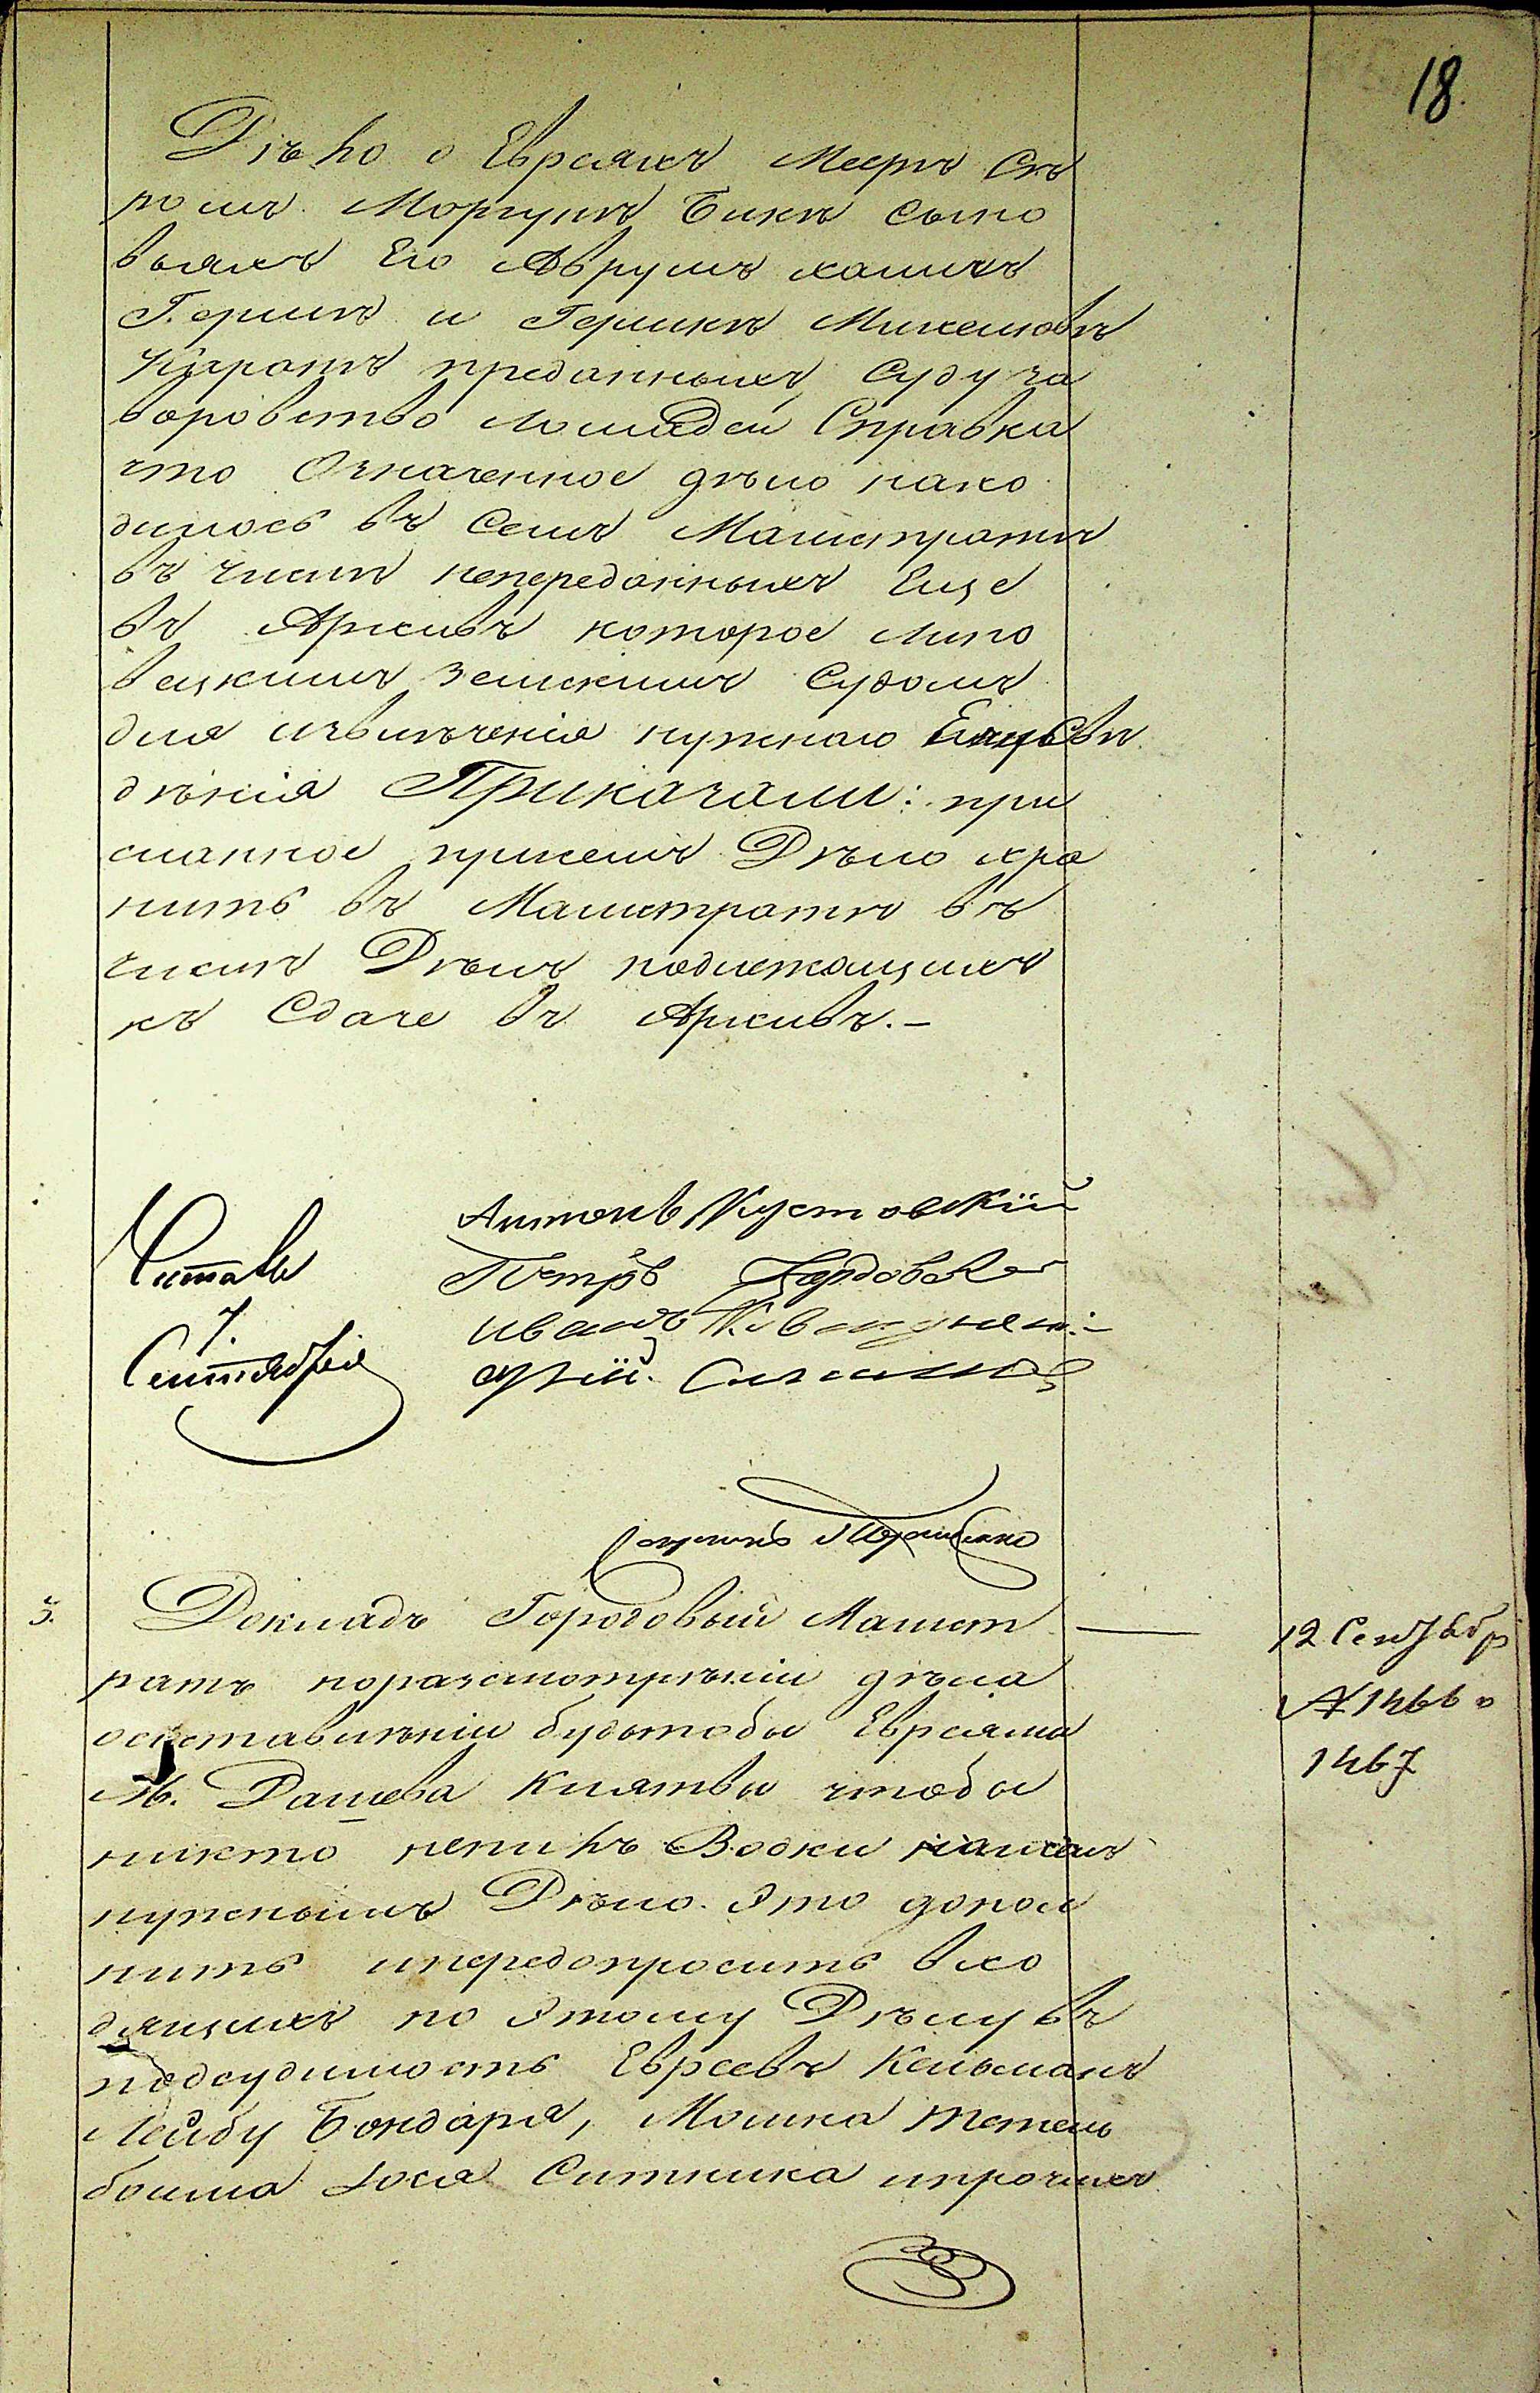 18.
Дѣло о Евреяхъ Меерѣ Ск
ромъ Моргунѣ Бикѣ Сыно
вьяхъ Его Аврумѣ хаимѣ
Гершнѣ и Гершкѣ Михелювѣ
преданныхъ Суду за
воровство Лошадей Справка
что Означенное дѣло нахо
дилось въ Семъ Магистратѣ
въ числѣ непереданныхъ Еще
въ Архивъ которое Липо
вецкимъ Земскимъ Судомъ
для извлеченія нужнаго Ему Свѣ
дѣнія Приказали: при
сланное присемъ Дѣло хра
нить въ Магистратѣ въ
числѣ Дѣлъ подлежащихъ
къ Сдаче въ Архивъ.–
Антонъ Кустовскій
Читалъ
Петръ
7.
Иванъ
Сентября
3.
Докладъ Городовый Магист
ратъ поразсмотрѣніи дѣла
осоставленіи будьтобы Евреями
М. Дашева Клятвы чтобы
никто непилъ Водки нашелъ
нужнымъ Дѣло Это допол
нить ипередопросить вхо
дящихъ по Этому Дѣлу въ
подсудимость Евреевъ Кельмана
Лейбу Бондаря, Мошка Тетель
бойма Іося Ситника ипрочихъ
12 Сентябр
№ 1466 и
1467